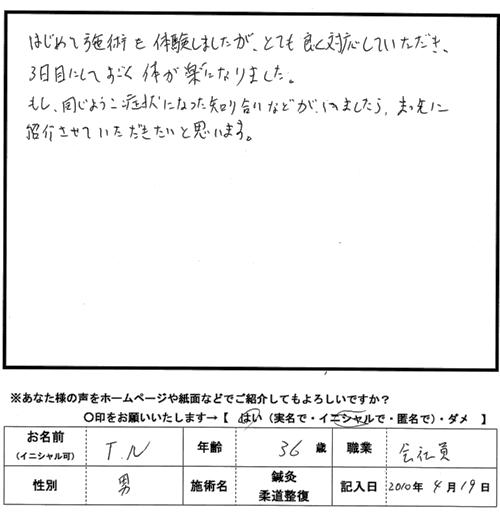 はじめて施術を体験しましたが、とても良く対応していただき、
3日目にしてすごく体が楽になりました。
もし、同じような症状になった知り合いなどがいましたら、まっ先に
紹介させていただきたいと思います。
※あなた様の声をホームページや紙面などでご紹介してもよろしいですか？
〇印をお願いいたします→【 はい（実名で・イニシャルで・匿名で）・ダメ 】
お名前（イニシャル可） T.N 年齢 36歳 職業 会社員
性別 男 施術名 鍼灸 柔道整復 記入日 2010年4月19日